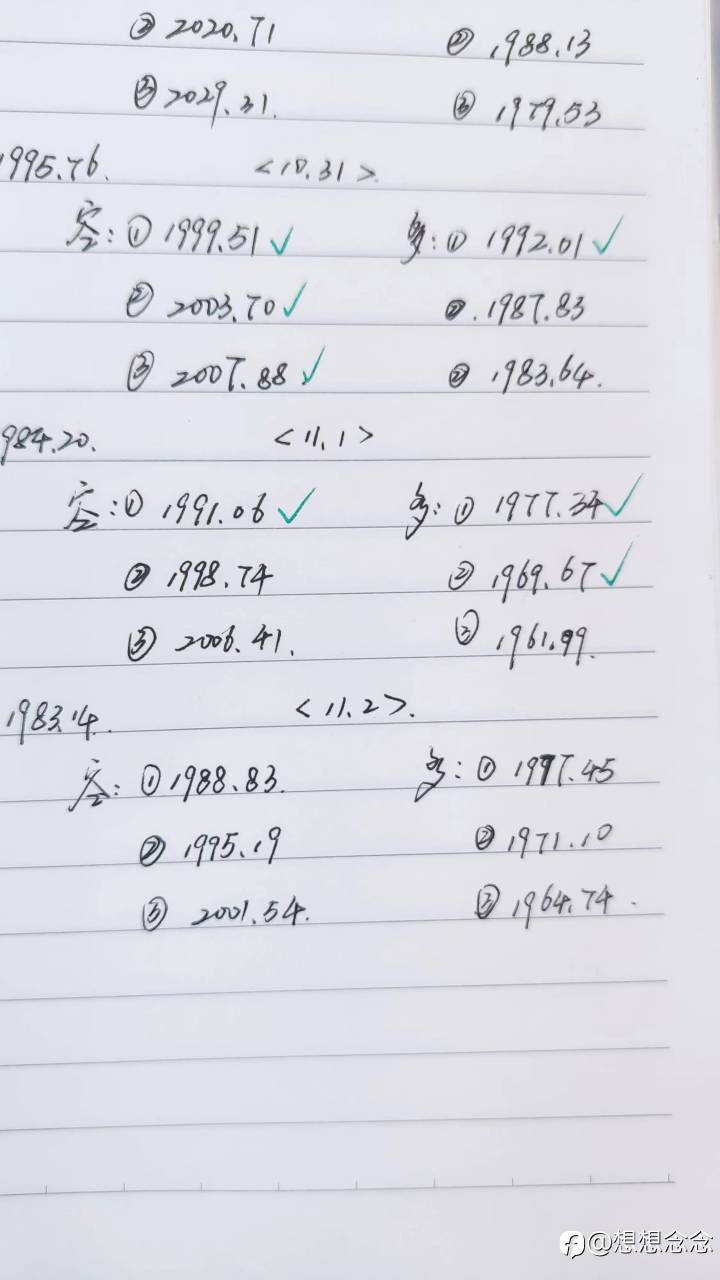 ② 2020.71 ② 1988.13
③ 2029.31. ③ 1979.53
1995.76. <10.31>.
空:① 1999.51 ✓ 多:① 1992.01 ✓
② 2003.70 ✓ ② 1987.83
③ 2007.88 ✓ ③ 1983.64.
984.20. <11.1>
空:① 1991.06 ✓ 多:① 1977.34 ✓
② 1998.74 ② 1969.67 ✓
③ 2006.41. ③ 1961.99.
1983.14. <11.2>.
空:① 1988.83. 多:① 1977.45
② 1995.19 ② 1971.10
③ 2001.54. ③ 1964.74.
@想想念念